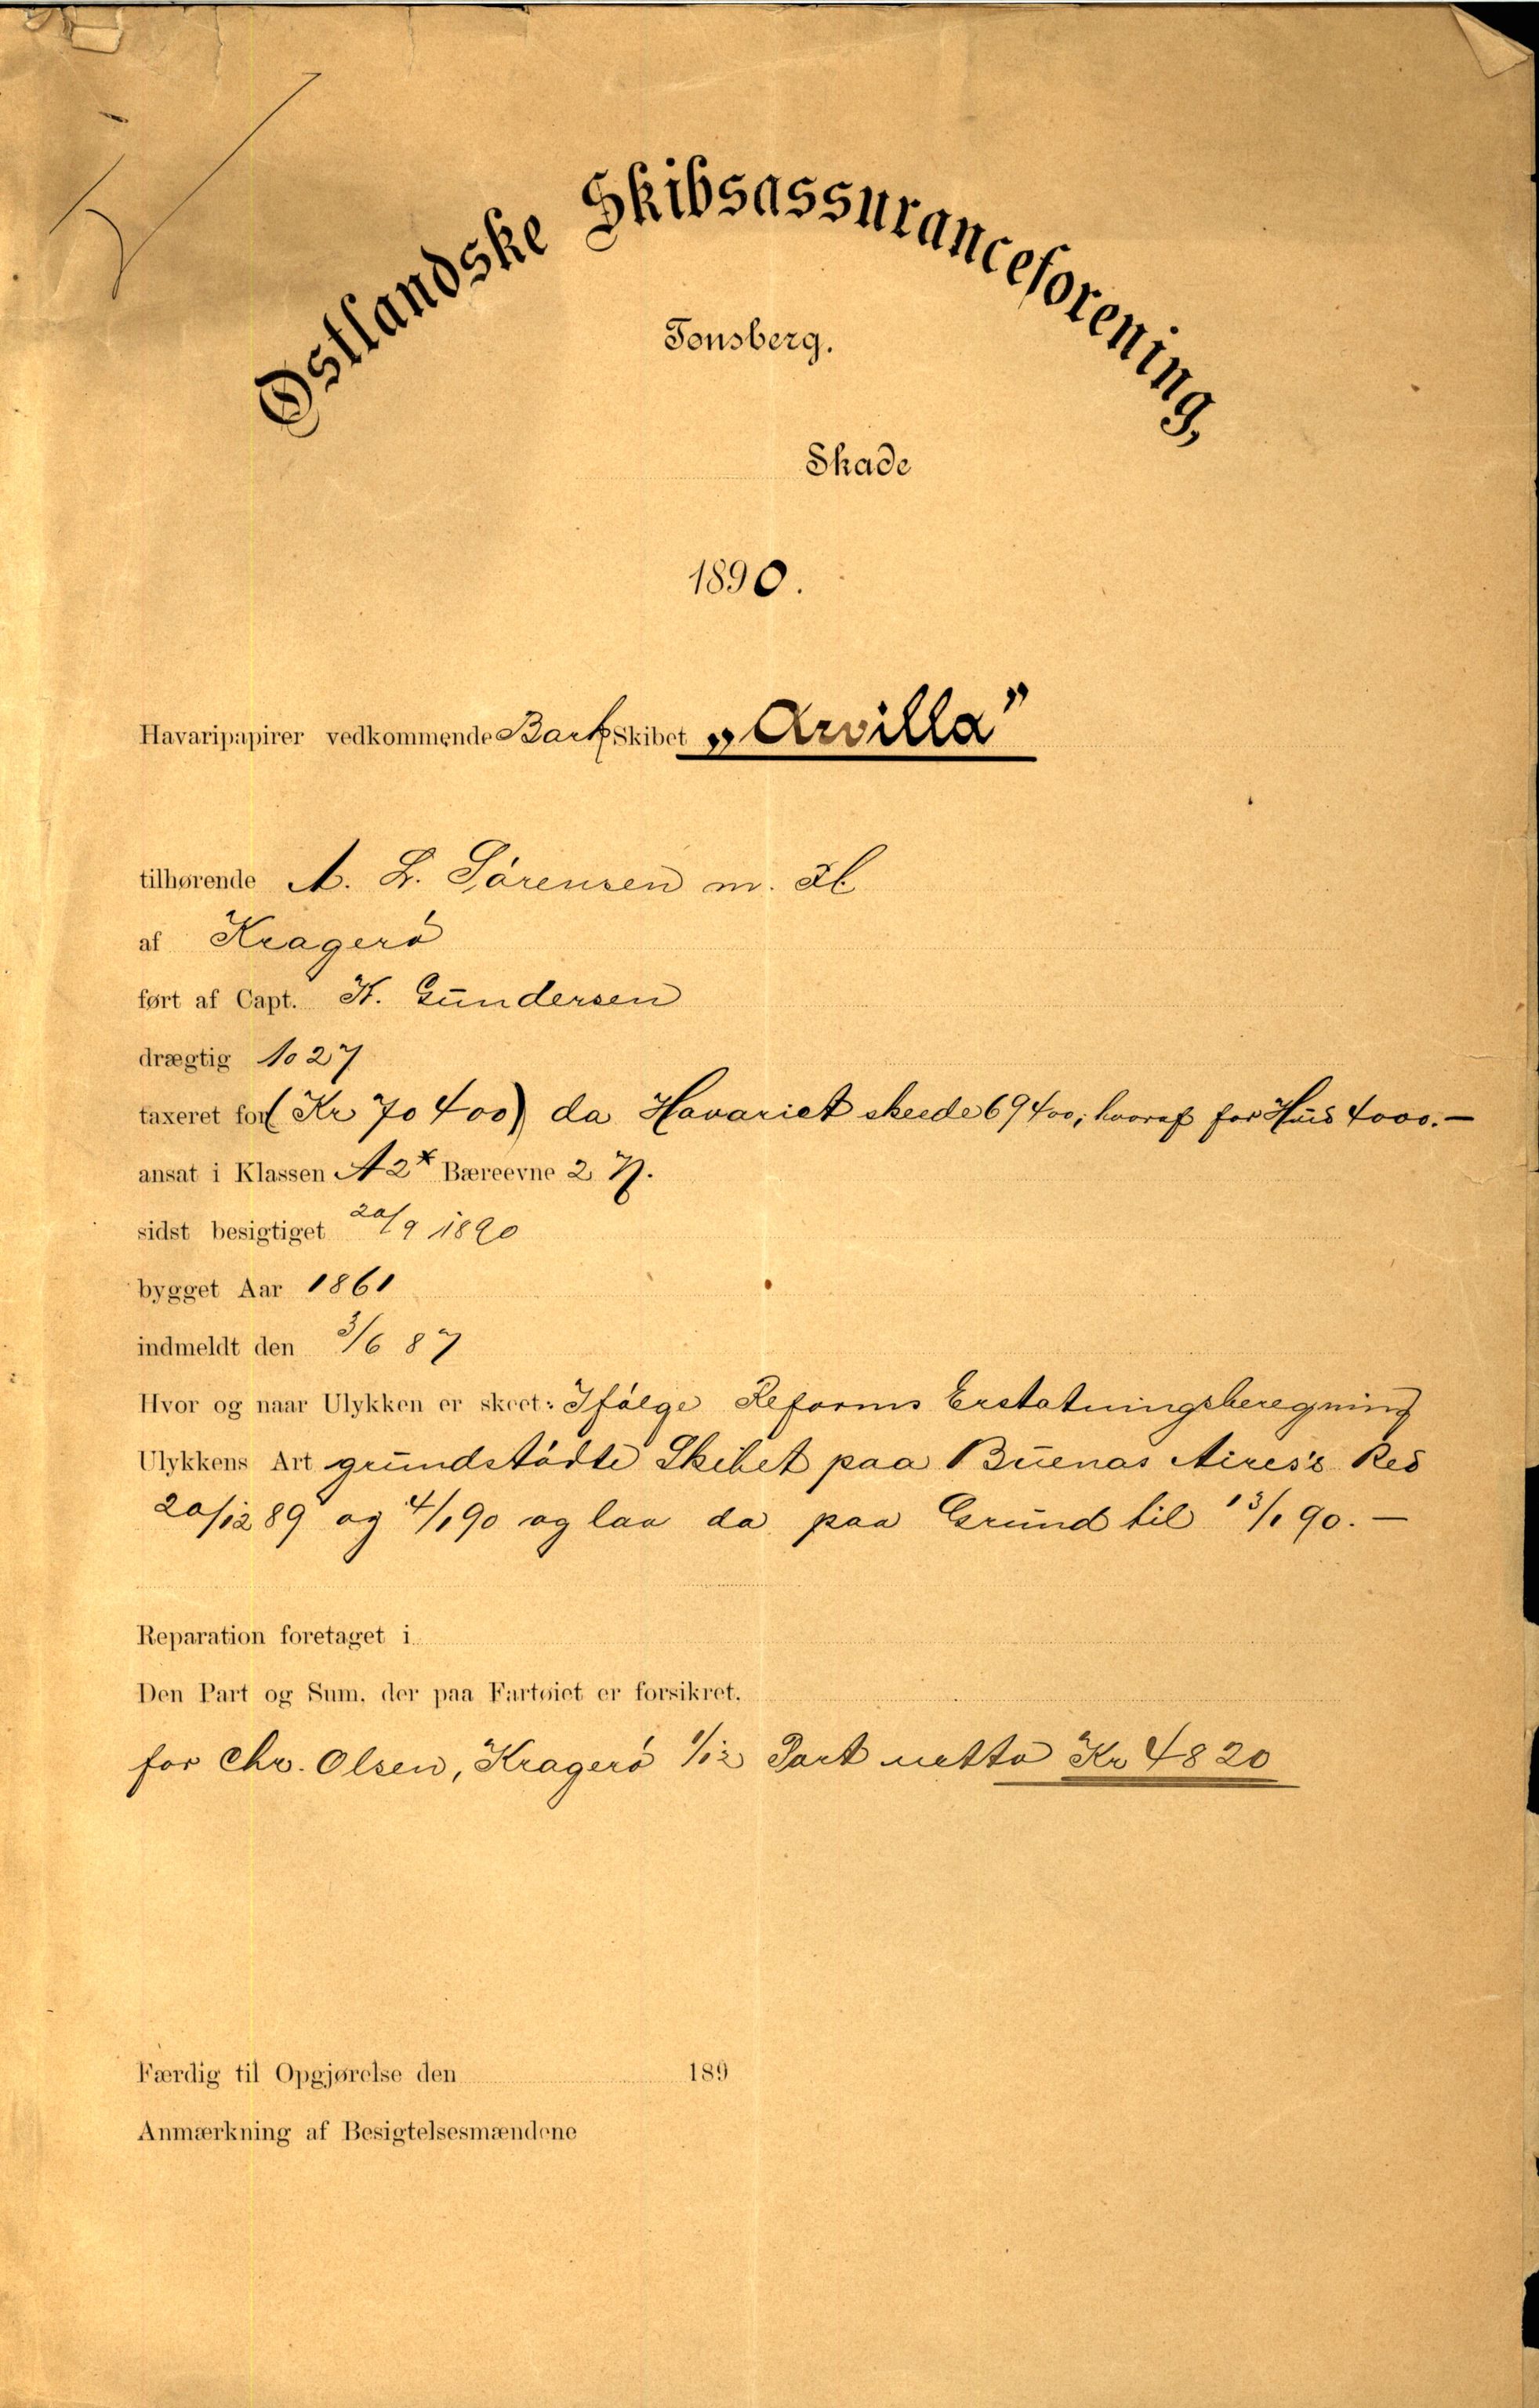 Østlandske Skibsassuranceforening,
Tønsberg.
Skade
1890.
Havaripapirer vedkommende Bark Skibet „Arvilla”
tilhørende A. L. Sörensen m. Fl
af Kragerö
ført af Capt. K. Gundersen
drægtig 1027
taxeret for (Kr 70400) da Havariet skeede 69400, hvoraf for Hus 4000.—
ansat i Klassen A2* Bæreevne 2
sidst besigtiget 20/9 1890
bygget Aar 1861
indmeldt den 3/6 87
Hvor og naar Ulykken er skeet: Ifölge Reforms Erstatningsberegning
Ulykkens Art grundstödte Skibet paa Buenos Aires's Red
20/12 89 og 4/1 90 og laa da paa Grund til 13/1 90.—
Reparation foretaget i
Den Part og Sum, der paa Fartøiet er forsikret.
for Chr. Olsen, Kragerö 1/12 Part netto Kr 4820
Færdig til Opgjørelse den 189
Anmærkning af Besigtelsesmændene